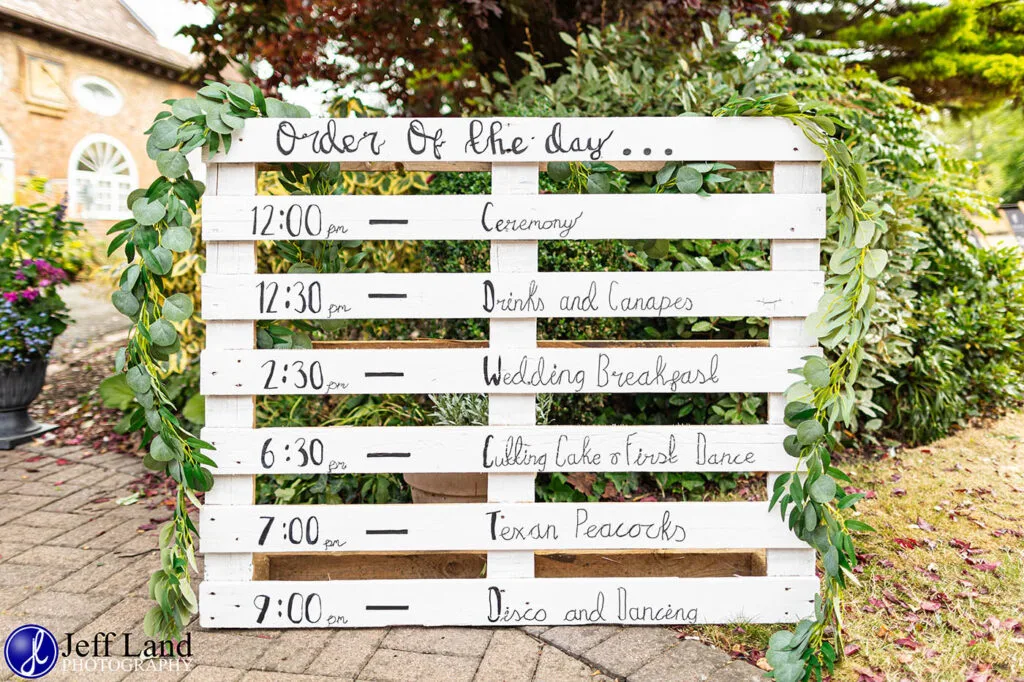 Order Of the day ...
12:00 pm — Ceremony
12:30 pm — Drinks and Canapes
2:30 pm — Wedding Breakfast
6:30 pm — Cutting Cake & First Dance
7:00 pm — Texan Peacocks
9:00 pm — Disco and Dancing
Jeff Land
PHOTOGRAPHY